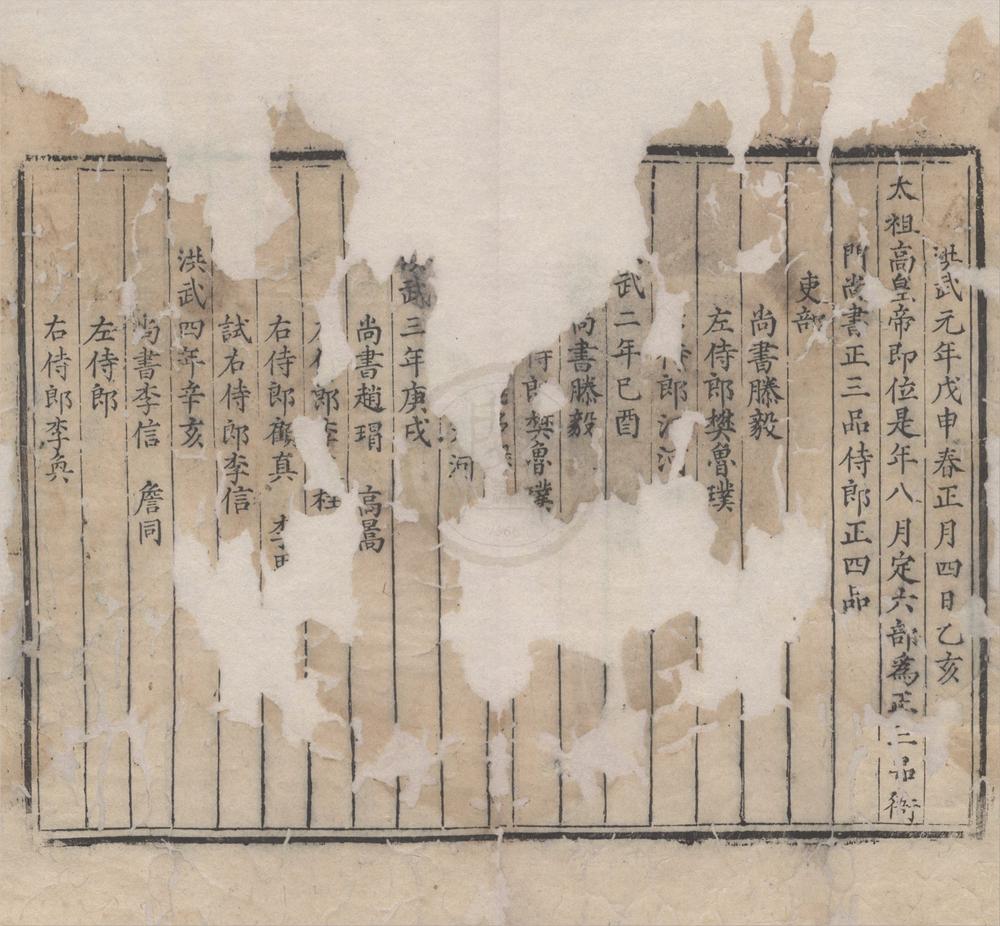 洪武元年戊申春正月四日乙亥
太祖高皇帝即位是年八月定六部爲正三品衙
門尚書正三品侍郎正四品
吏部
尚書滕毅
左侍郎樊魯璞
侍郎
武二年己酉
尚書滕毅
侍郎樊魯璞
河
武三年庚戌
尚書趙瑁 高暠
侍郎李
右侍郎顧真
試右侍郎李信
洪武四年辛亥
尚書李信 詹同
左侍郎
右侍郎李奐